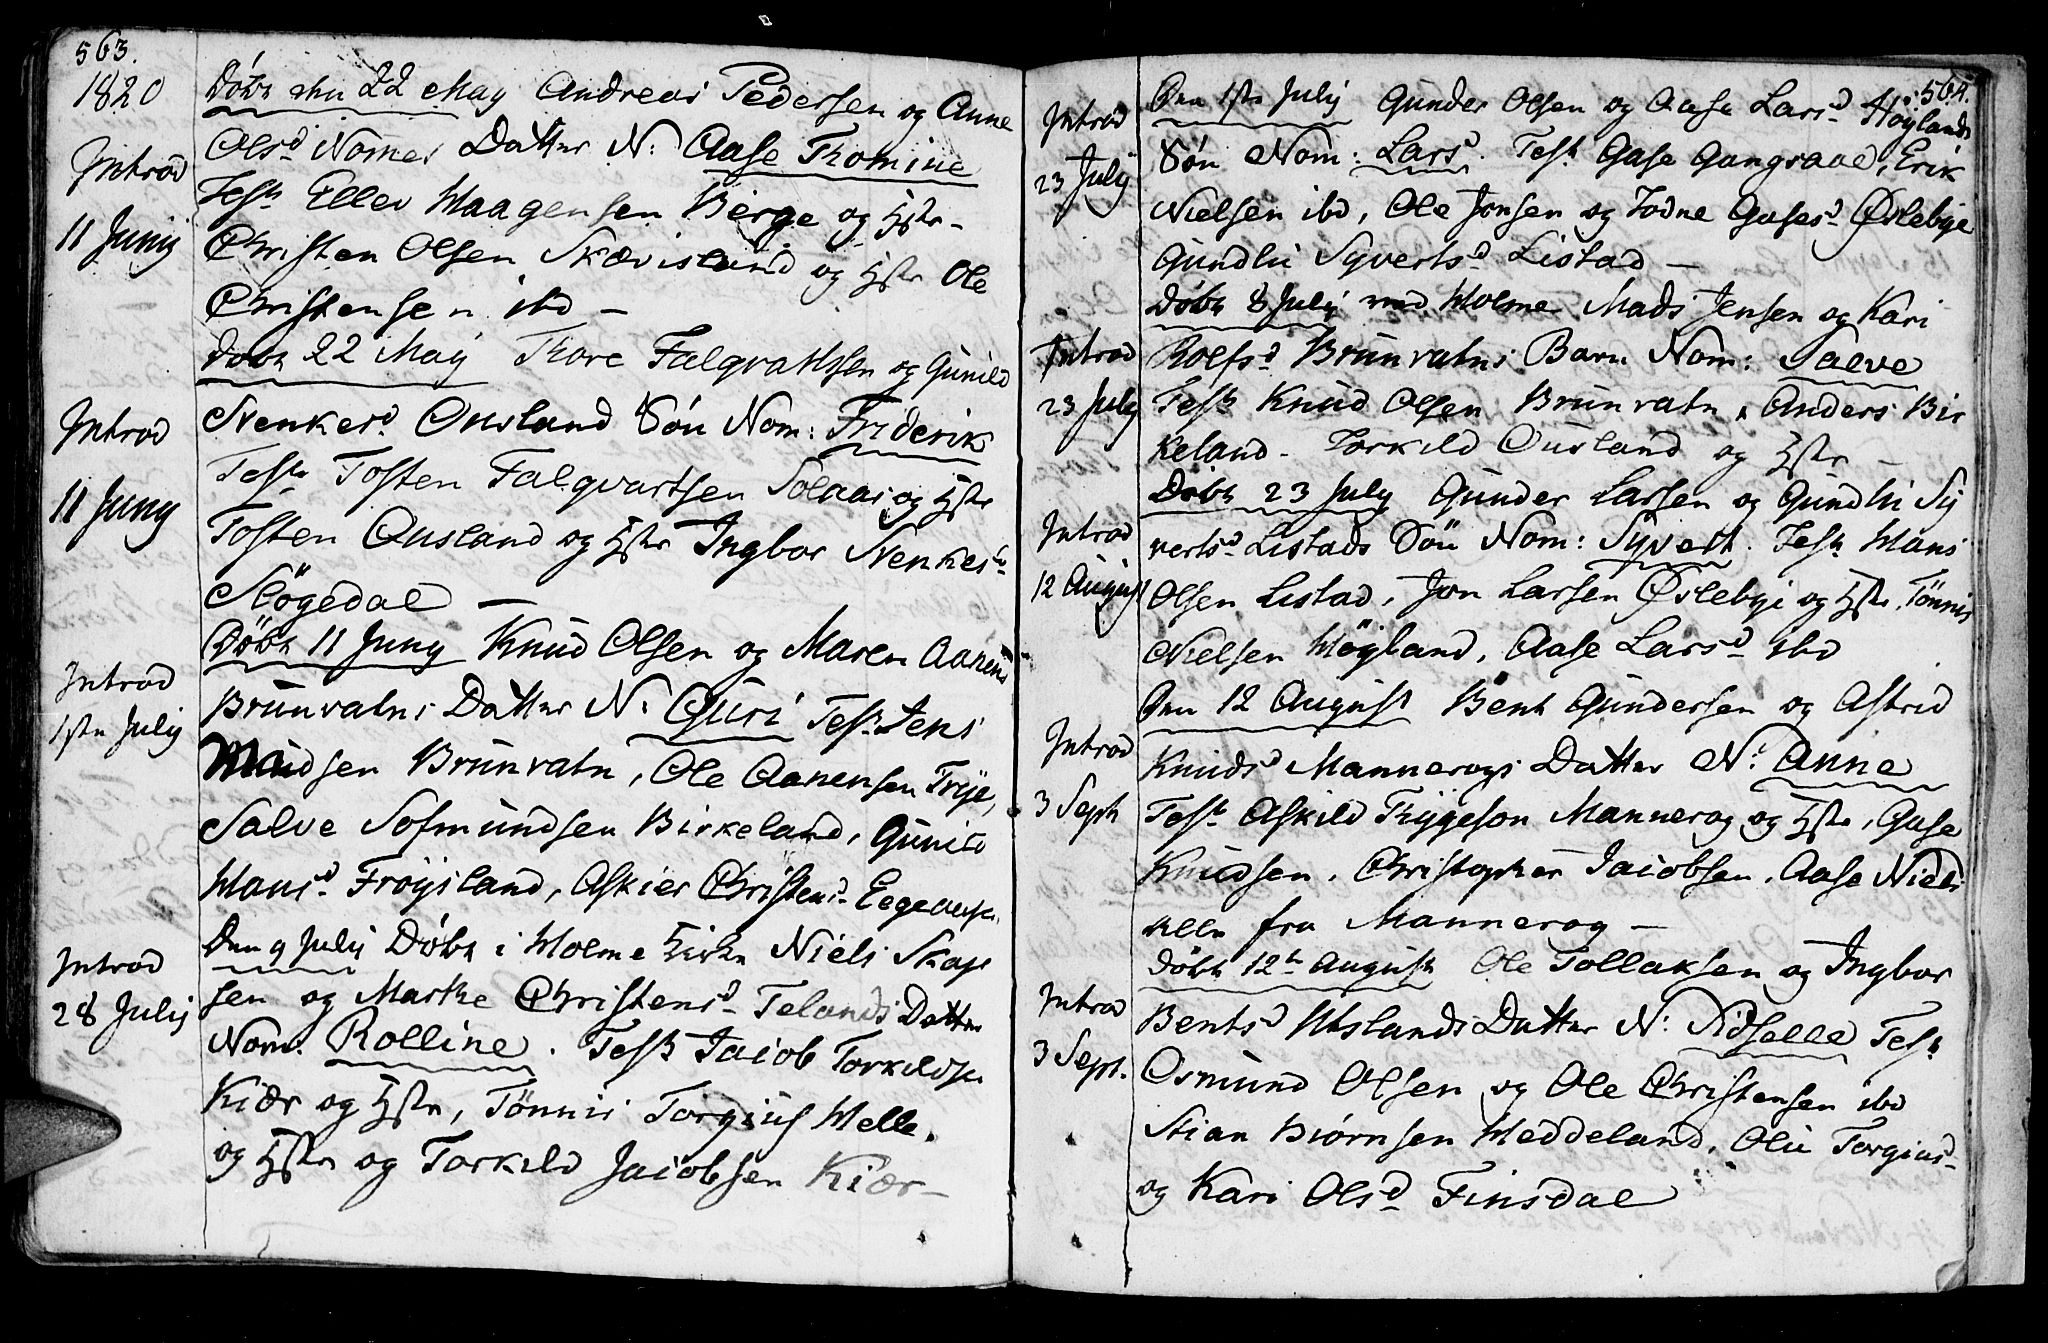 563.
1820
Introd
11 Junij
Introd
11 Juny
Introd
1ste Julij
Introd
28 Julij
Døbt den 22 May Andreas Pedersen og Anne
Olsd Nomes Datter N: Aase Thomine
Test Ellev Haagensen Berge og Hstr -
Christen Olsen Skævisland og Hstr Ole
Christensen ibd -
Døbt 22 Maÿ Thore Falqvattsen og Gunild
Svenkesd Ousland Søn Nom: Friderik
Test Tosten Falqvartsen Solaas og Hstr
Tosten Ousland og Hstr Ingbor Svenkesd
Sløgedal -
Døbt 11 Juny Knud Olsen og Maren Aanensd
Brunvatns Datter N. Guri Test Jens
Madsen Brunvatn, Ole Aanensen Trÿe,
Salve Sofmundsen Birkeland, Gunild
Hansd Frøysland, Askier Christensd
Den 9 Julij Døbt i Holme Kirke Niels
sen og Marthe Christensd Telands Datter
Nom. Rolline. Test Jacob Torkildsen
Kiær og Hstr, Tønnis Torgius Helle,
og Hstr og Torkild Jacobsen Kiær -
564.
Introd
23 July
Introd
23 July
Introd
12 August
Introd
3 Sept
Introd
3 Sept.
Den 1ste Julij Gunder Olsen og Aase Larsd Høylands
Søn Nom: Lars. Test Gase Gangsaae, Erik
Nielsen ibd, Ole Jonsen og Todne Gasesd Øslebye
Gundlii Syvertsd Listad -
Døbt 8 Julij ved Holme Mads Jensen og Kari
Rolfsd Brunvatns Barn Nom: Salve
Test Knud Olsen Brunvatn, Anders Bir
keland - Torkild Ousland og Hstr -
Døbt 23 July Gunder Larsen og Gundlii Sy
vertsd Listads Søn Nom: Syvert. Test Hans
Olsen Listad, Jon Larsen Øslebye og Hstr, Tønnis
Nielsen Høyland, Aase Larsd ibd
Den 12 August Bent Gundersen og Astrid
Knudsd Mannerogs Datter N: Anne
Test Askild Thygeson Mannerog og Hstr, Gase
Knudsen, Christopher Jacobsen, Aase Nielsd
alle fra Mannerog -
Døbt 12te August Ole Tollaksen og Ingbor
Bentsd Utslands Datter N: Sidselle Test
Osmund Olsen og Ole Christensen ibd
Stian Biørnsen Heddeland, Olii Torgiusd
og Kari Olsd Finsdal